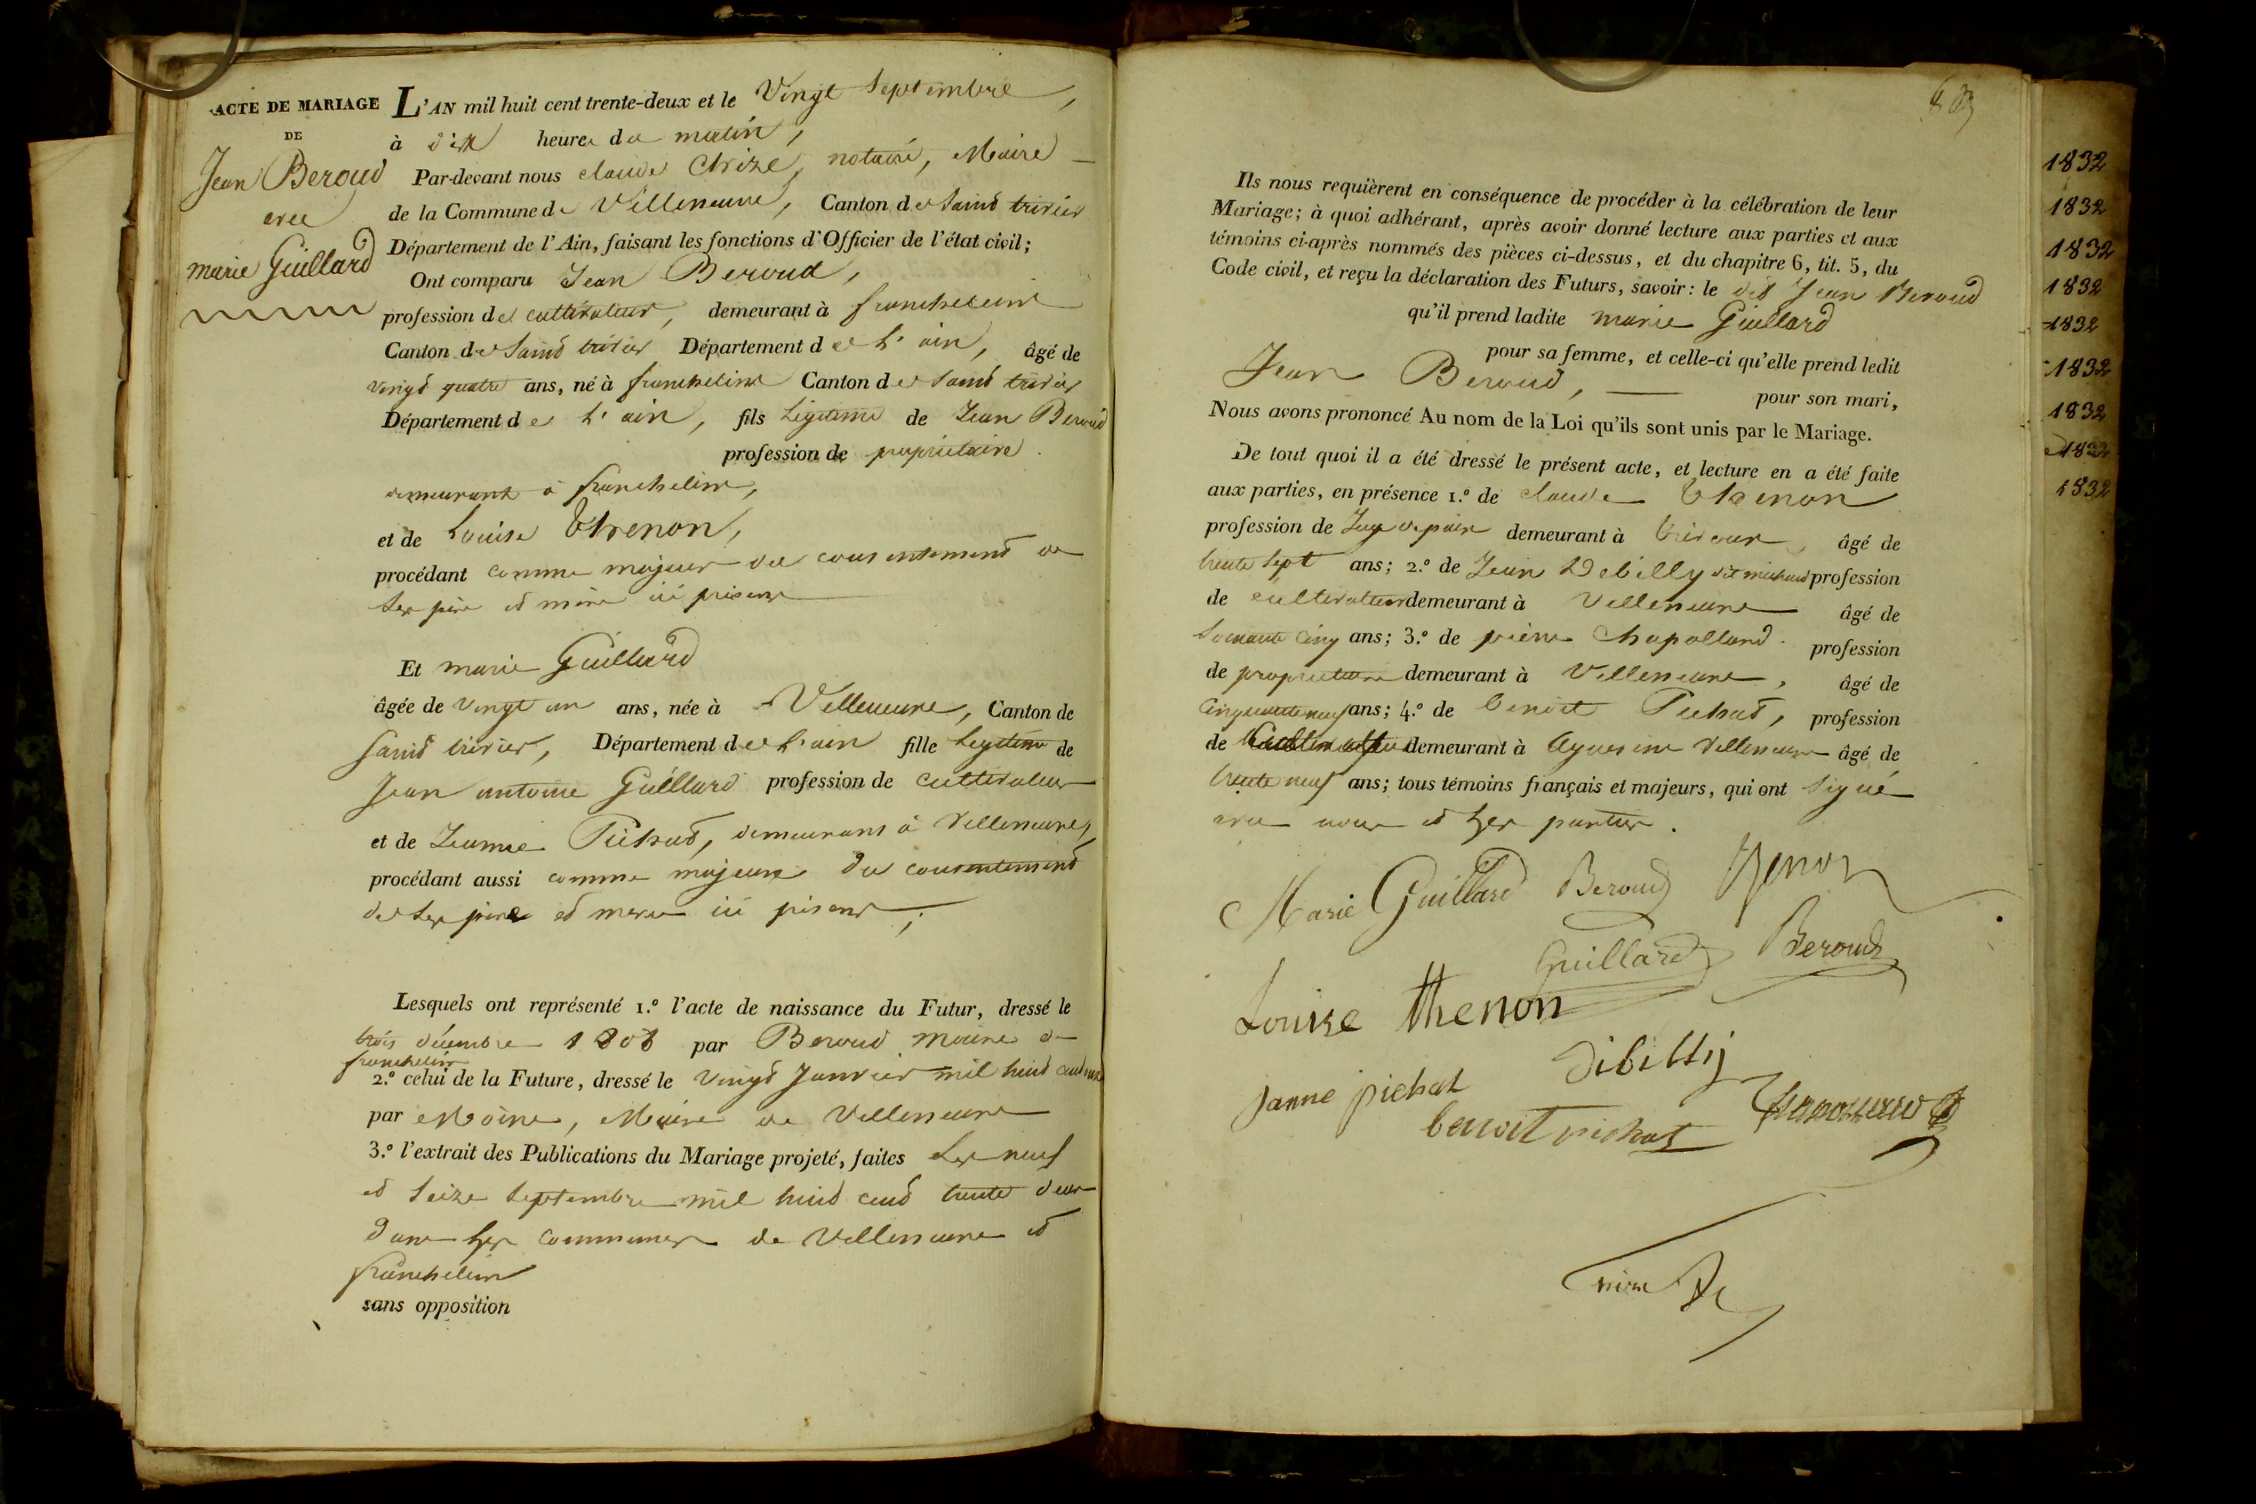 ACTE DE MARIAGE
DE
Jean Beroud
avec
marie Guillard
L'AN mil huit cent trente-deux et le Vingt Septembre,
à dix heures du matin,
Par-devant nous claude notaire, Maire
de la Commune de Villeneuve, Canton de Saint trivier
Département de l'Ain, faisant les fonctions d'Officier de l'état civil;
Ont comparu Jean Beroud,
profession de cultivateur, demeurant à francheleins
Canton de Saint trivier Département de l'ain, âgé de
vingt quatre ans, né à franchelins Canton de Saint trivier
Département de l'ain, fils légitime de Jean Beroud
profession de propriétaire.
demeurant à franchelins,
et de Louise Thenon,
procédant comme majeur du consentement de
Ses père et mère ici présens
Et marie Guillard
âgée de vingt un ans, née à Villeneuve, Canton de
Saint trivier, Département de l'ain fille légitime de
Jean antoine Guillard profession de cultivateur
et de Jeanne Pichat, demeurans à Villeneuve,
procédant aussi comme majeure du consentement
de ses père et mere ici présens;
Lesquels ont représenté 1.º l'acte de naissance du Futur, dressé le
trois décembre 1808 par Beroud maire de
franchelins
2.º celui de la Future, dressé le vingt Janvier mil huit cent
par Moine, Maire de Villeneuve
3.º l'extrait des Publications du Mariage projeté, faites Les neuf
et Seize Septembre mil huit cent trente deux
dans les communes de Villeneuve et
franchelins
sans opposition
Ils nous requièrent en conséquence de procéder à la célébration de leur
Mariage; à quoi adhérant, après avoir donné lecture aux parties et aux
témoins ci-après nommés des pièces ci-dessus, et du chapitre 6, tit. 5, du
Code civil, et reçu la déclaration des Futurs, savoir: le dit Jean Beroud
qu'il prend ladite marie Guillard
pour sa femme, et celle-ci qu'elle prend ledit
Jean Beroud, pour son mari,
Nous avons prononcé Au nom de la Loi qu'ils sont unis par le Mariage.
De tout quoi il a été dressé le présent acte, et lecture en a été faite
aux parties, en présence 1.º de claude Thenon
profession de Juge de paix demeurant à âgé de
trente Sept ans; 2.º de Jean Debilly dit michaud profession
de cultivateur demeurant à Villeneuve âgé de
Soixante cinq ans; 3.º de pierre Chapolland. profession
de propriétaire demeurant à Villeneuve, âgé de
Cinquante neuf ans; 4.º de benoit Pichat, profession
de demeurant à Villeneuve âgé de
trente neuf ans; tous témoins français et majeurs, qui ont Signé
avec nous et les parties.
Marie Guillard Beroud Thenon
Guillard Beroud
Louise thenon
Janne pichat Dibilly
benoit pichat
1832
1832
1832
1832
1832
1832
1832
1832
1832